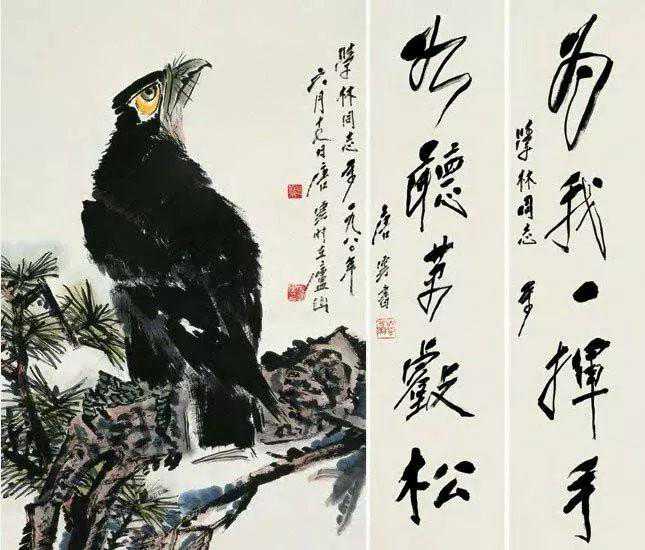 為我一揮手
學林同志 正
如聽萬壑松
唐雲書
學林同志正 一九八〇年
六月十日唐雲時在廬山